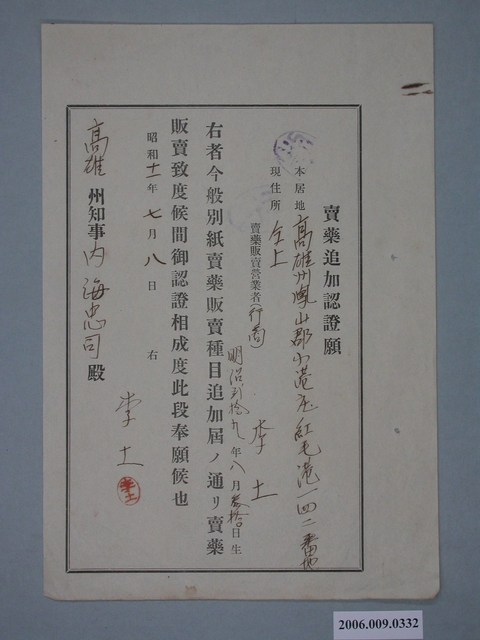 賣藥追加認證願
本居地 高雄州鳳山郡小港庄紅毛港一四二番地
現住所 仝上
賣藥販賣營業者(行商) 李土
明治貳拾九年八月參拾日生
右者今般別紙賣藥販賣種目追加屆ノ通リ賣藥
販賣致度候間御認證相成度此段奉願候也
昭和十一年七月八日
右 李土
高雄州知事内海忠司殿
2006.009.0332